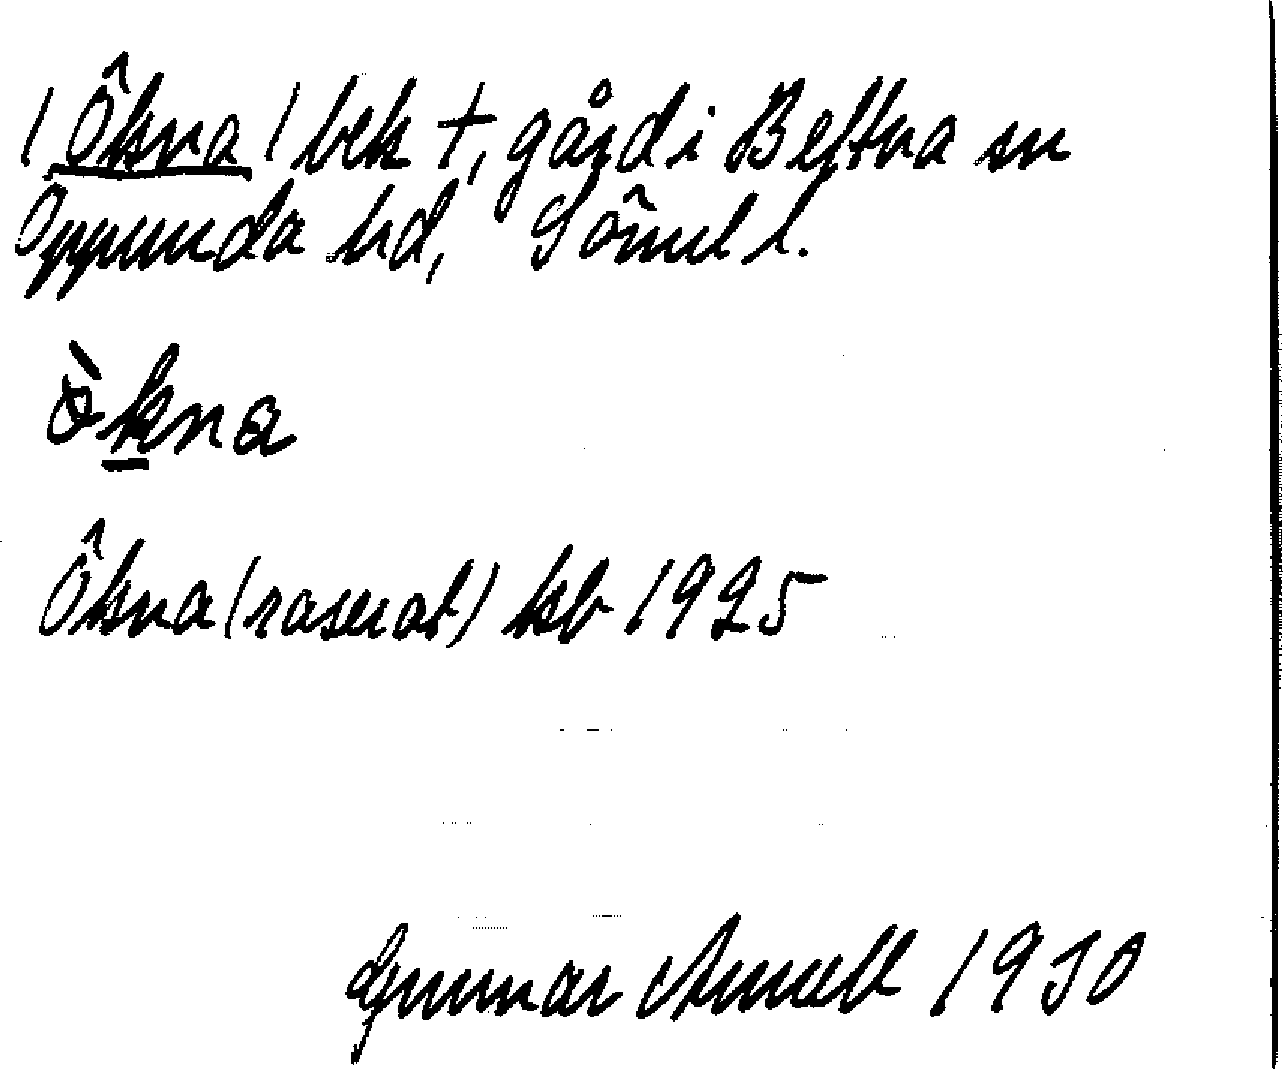 / Ökna / bek †, gård i Bettna sn
Oppunda hd, Söml l.
ò̈kna
Ökna (raserat) kb 1925
Gunnar Arnell 1930